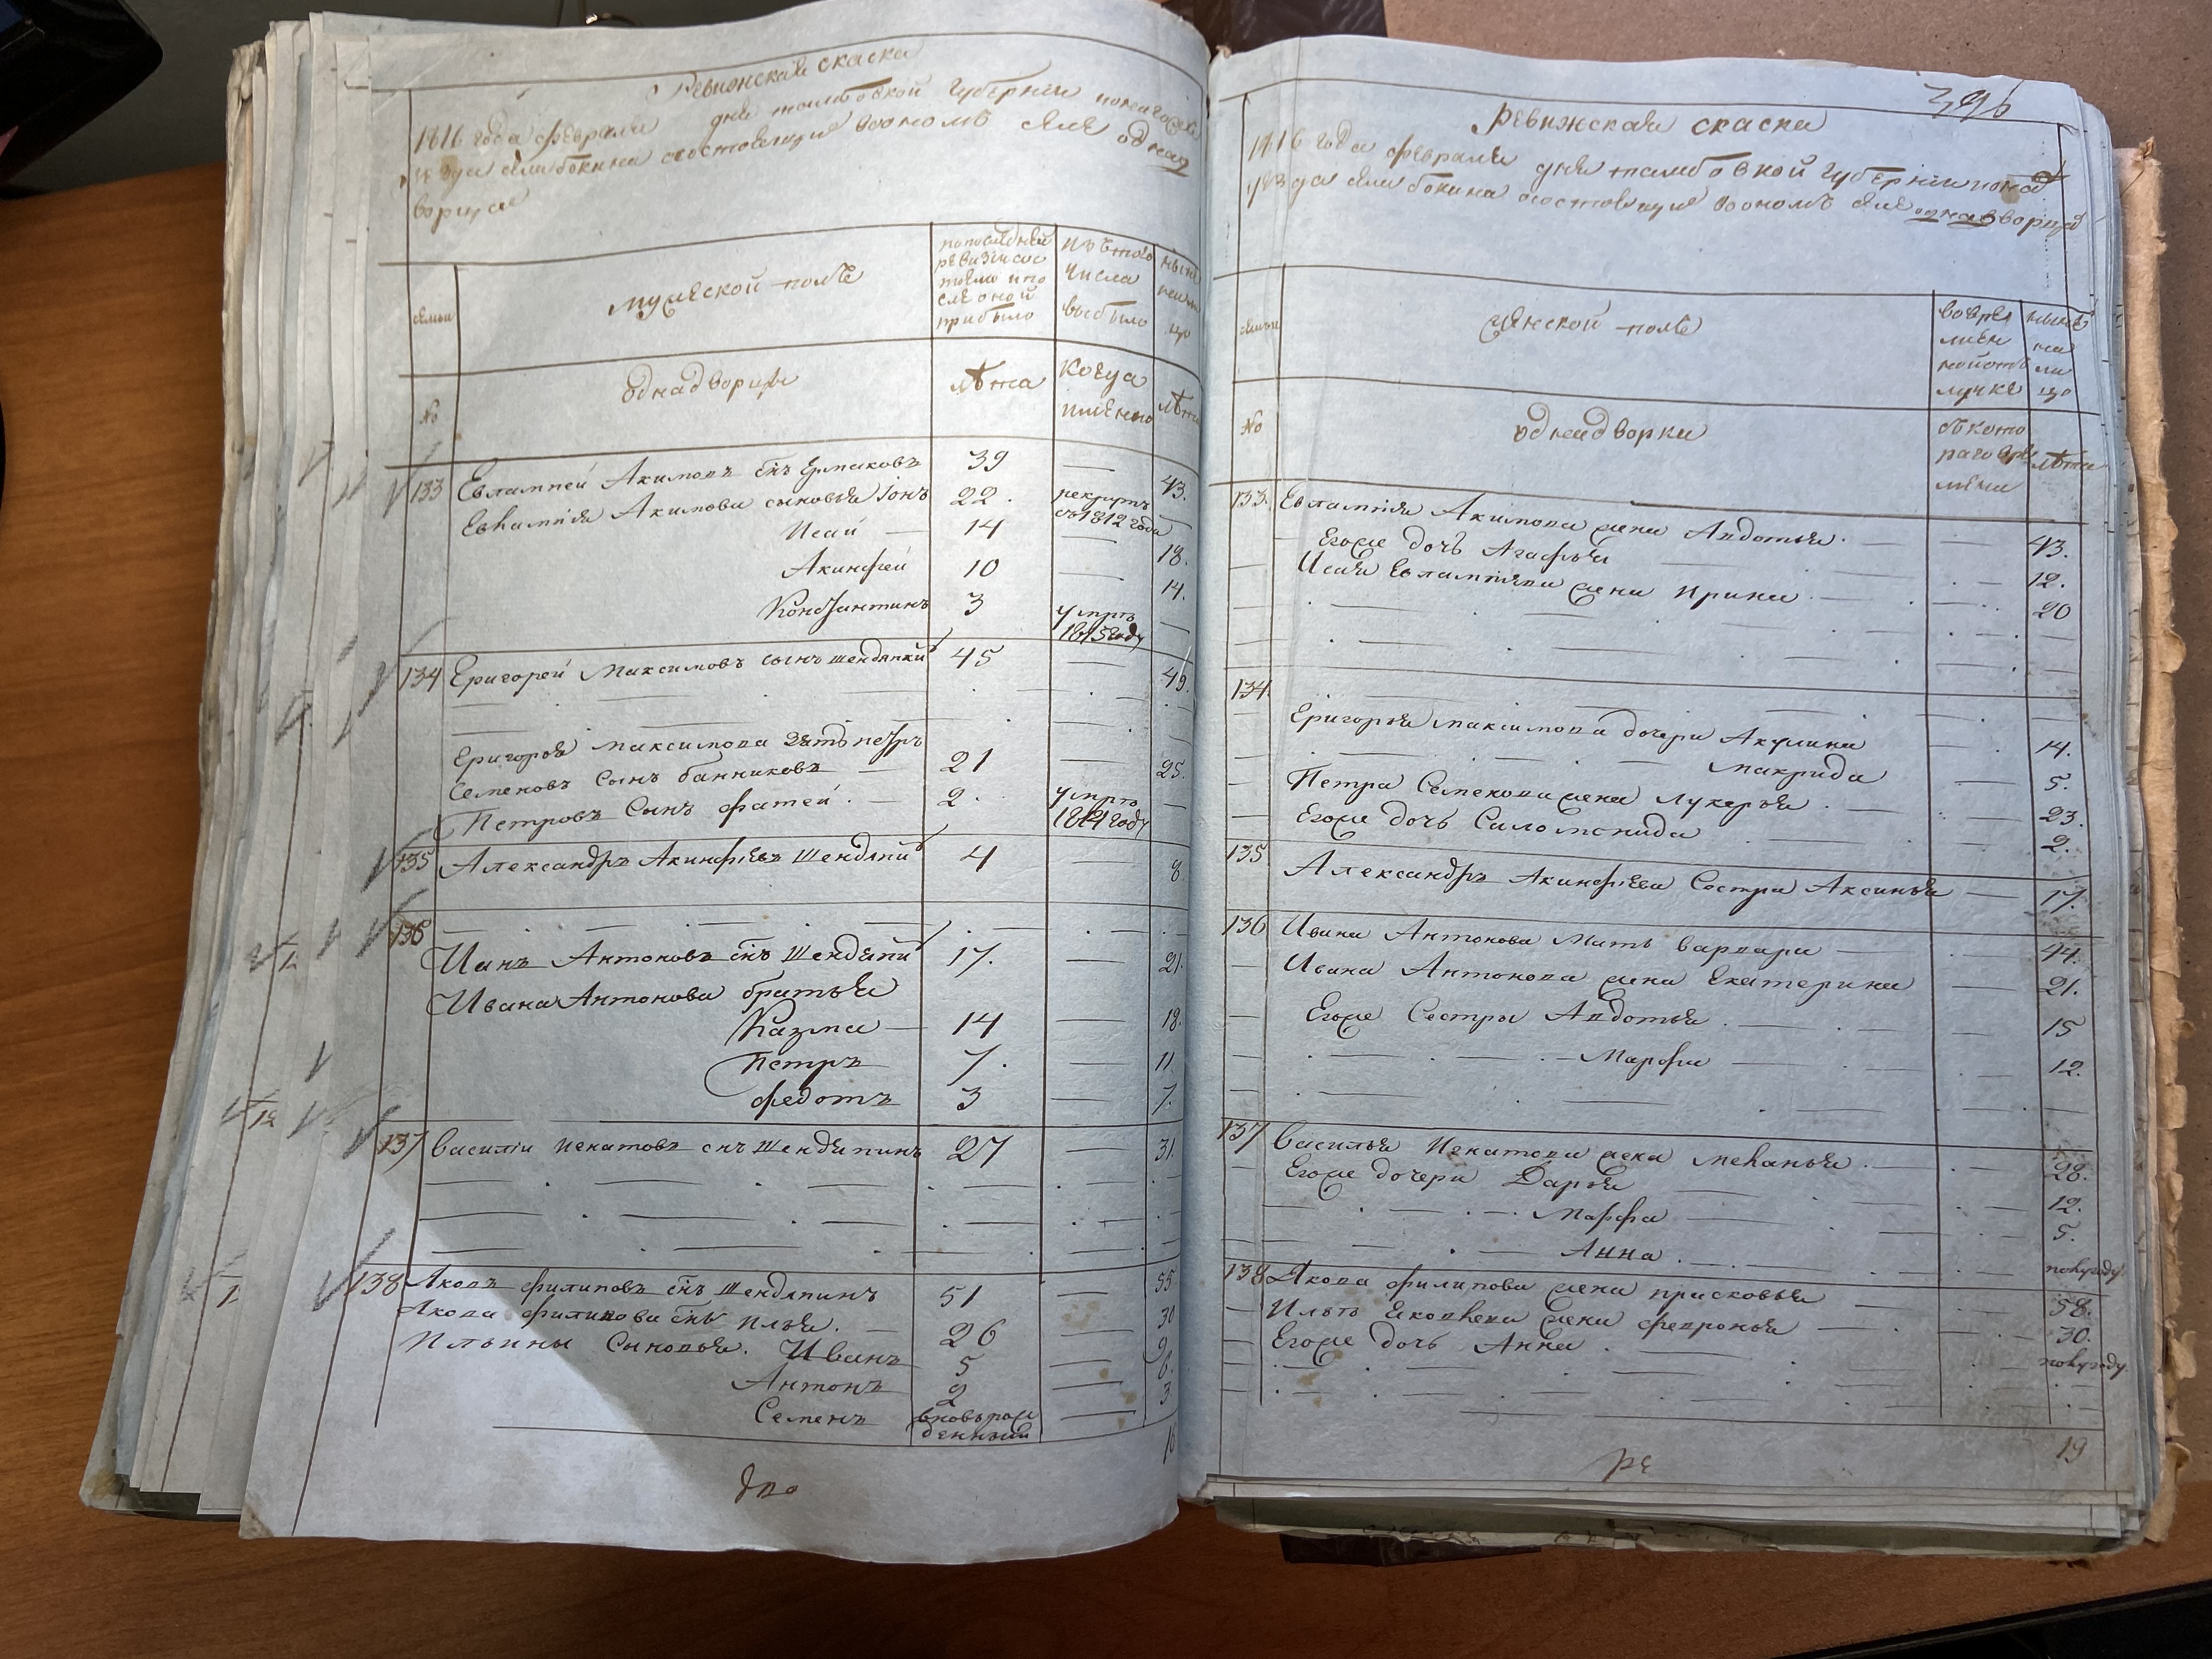 Ревижская скаска
1816 года февраля дня тамбовской губернии
уезда села бокина состоящия вооном селе однад
ворцах
семьи
мужской полъ
попоследней ревизии состояло и после оной прибыло
изътого числа выбыло
ныне налицо
№
однадворцы
лѣта
когда имѣнно
лѣта
133 Евлампей Акимовъ снъ Ермаковъ 39 — 43.
Евлампия Акимова сыновья Іонъ 22. рекрутъ съ1812 года —
Исай — 14 — 18.
Акинфей 10 — 14.
Констянтинъ 3 умртъ 1815году —
134 Григорей Максимовъ сынъ 45 — 49.
Григорья максимова зять петръ
Семеновъ Сынъ банниковъ — 21 — 25.
Петровъ Сынъ фатей. — 2. умртъ 1814году —
135 Александръ Акинфіевъ 4 — 8
136
Иванъ Антоновъ снъ 17. — 21.
Ивана Антонова братья
Казма — 14 — 18.
Петръ 7. — 11
федотъ 3 — 7.
137 Василіи Игнатовъ снъ Шендяпинъ 27 — 31.
138 Яковъ филиповъ снъ Шендяпинъ 51 — 55
Якова филипова снъ илья. — 26 — 30
Ильины Сыновья. Иванъ 5 — 9.
Антонъ 2 — 6.
Семенъ вновьрож денный — 3.
16
396
Ревижская скаска
1816 года февраля дня тамбовской губернии
уезда села бокина состоящия вооном селе однавворцах
семьи
женской полъ
вовремен нойотъ лучке
ныне на ли цо
№
однадворки
съкото раговре мѣни
лѣта
133. Евлампія Акимова жена Авдотья. — 43.
Егоже дочь Агафья — 12.
Исая Евлампіява жена Ирина — 20
134.
Григорья максимова дочери Акулина — 14.
Макрида — 5.
Петра Семенова жена Лукерья. — 23.
Егоже дочь Саломонида — 2.
135 Александръ Акинфіева Сестра Аксинья — 17.
136 Ивана Антонова Мать варвара — 44.
Ивана Антонова жена Екатерина — 21.
Егоже Сестры Авдотья — 15
Марфа — 12.
137 Василья Игнатова жена меланья. — 28.
Егоже дочери Дарья — 12.
Марфа — 5.
Анна. — полугоду
138 Якова филипова жена прасковья — 58.
Илья Яковлева жена февронья — 30.
Егоже дочь Анна. — полугоду.
19